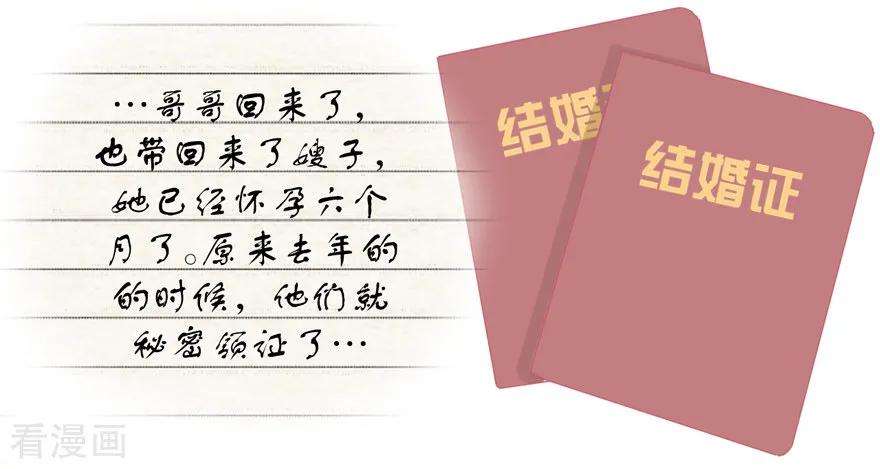 …哥哥回来了，
也带回来了嫂子，
她已经怀孕六个
月了。原来去年的
的时候，他们就
秘密领证了…
结婚证
结婚证
看漫画